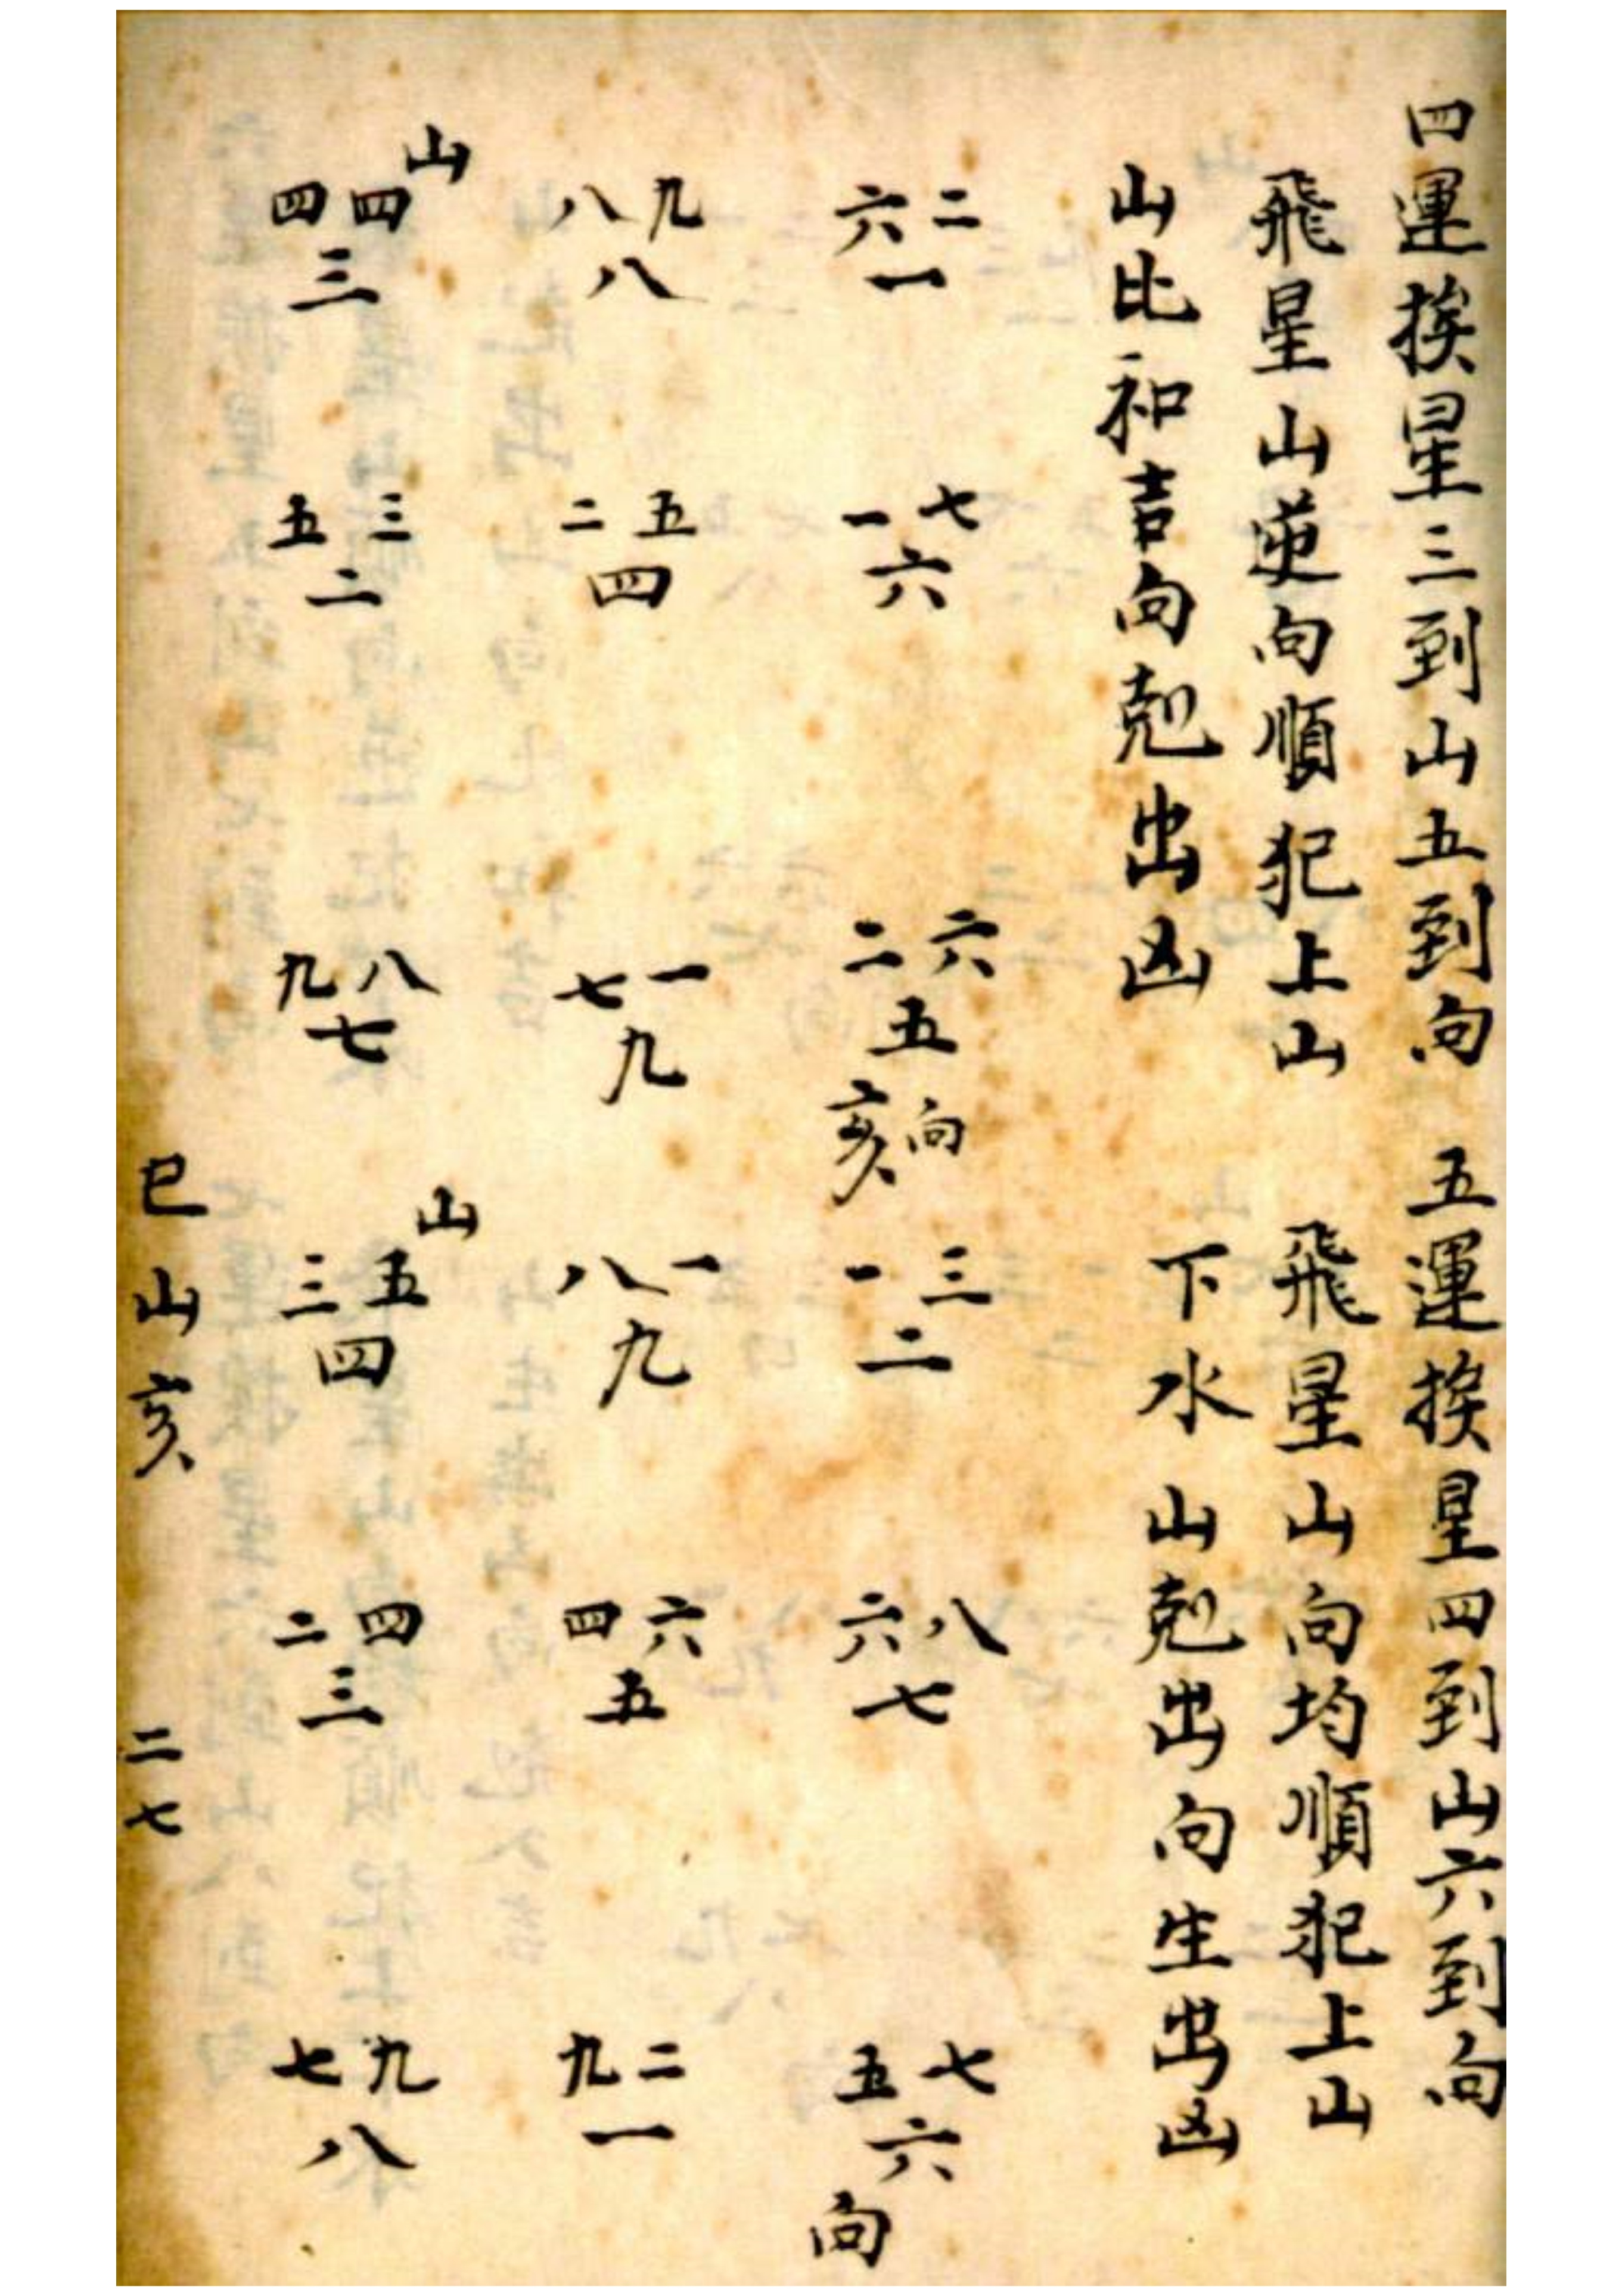 四運挨星三到山五到向
飛星山逆向順犯上山
山比和吉向剋出凶
六二
一
一七
六
二六
五
亥向
八九
八
二五
四
七一
九
山
四四
三
五三
二
九八
七
五運挨星四到山六到向
飛星山向均順犯上山
下水山剋出向生出凶
一三
二
六八
七
五七
六
向
八一
九
四六
五
九二
一
山
三五
四
二四
三
七九
八
巳山亥
二七